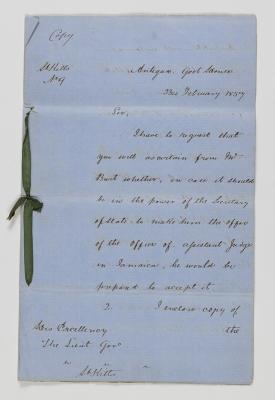 Copy
St Kitts
No 9
Antigua. Govt House
23rd February 1857
Sir,
I have to request that
you will ascertain from Mr
Burt whether, in case it should
be in the power of the Secretary
of State to make him the offer
of the Office of Assistant Judge
in Jamaica, he would be
prepared to accept it.
2. I enclose copy of
the
His Excellency
The Lieut Govr
St Kitts